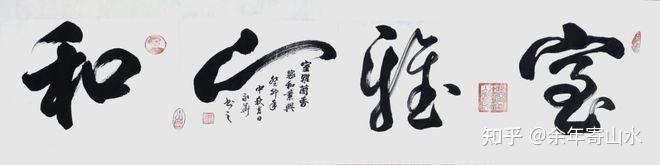 室雅心和
室雅蘭香
和業興
癸卯年
中秋吉日
书之
知乎 @余年寄山水